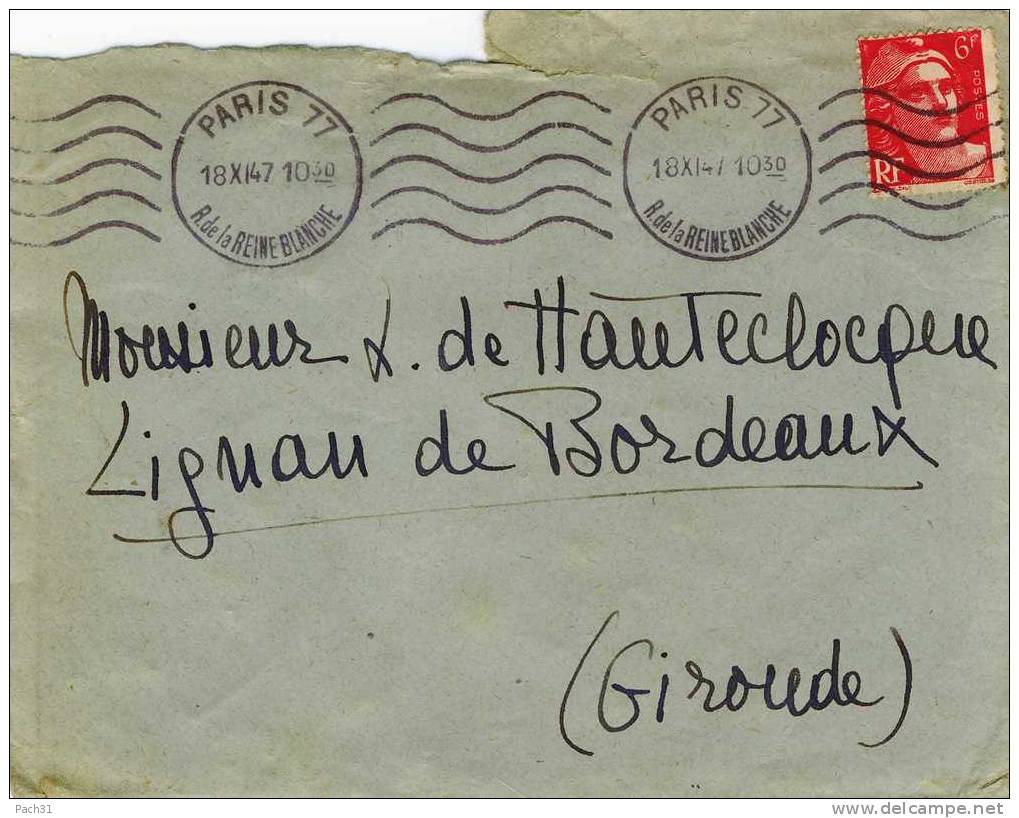 PARIS 77
18 XI 47 10 30
R. de la REINE BLANCHE
PARIS 77
18 XI 47 10 30
R. de la REINE BLANCHE
6F
POSTES
RF
Monsieur X. de Hauteclocque
Lignan de Bordeaux
(Gironde)
Pach31
www.delcampe.net